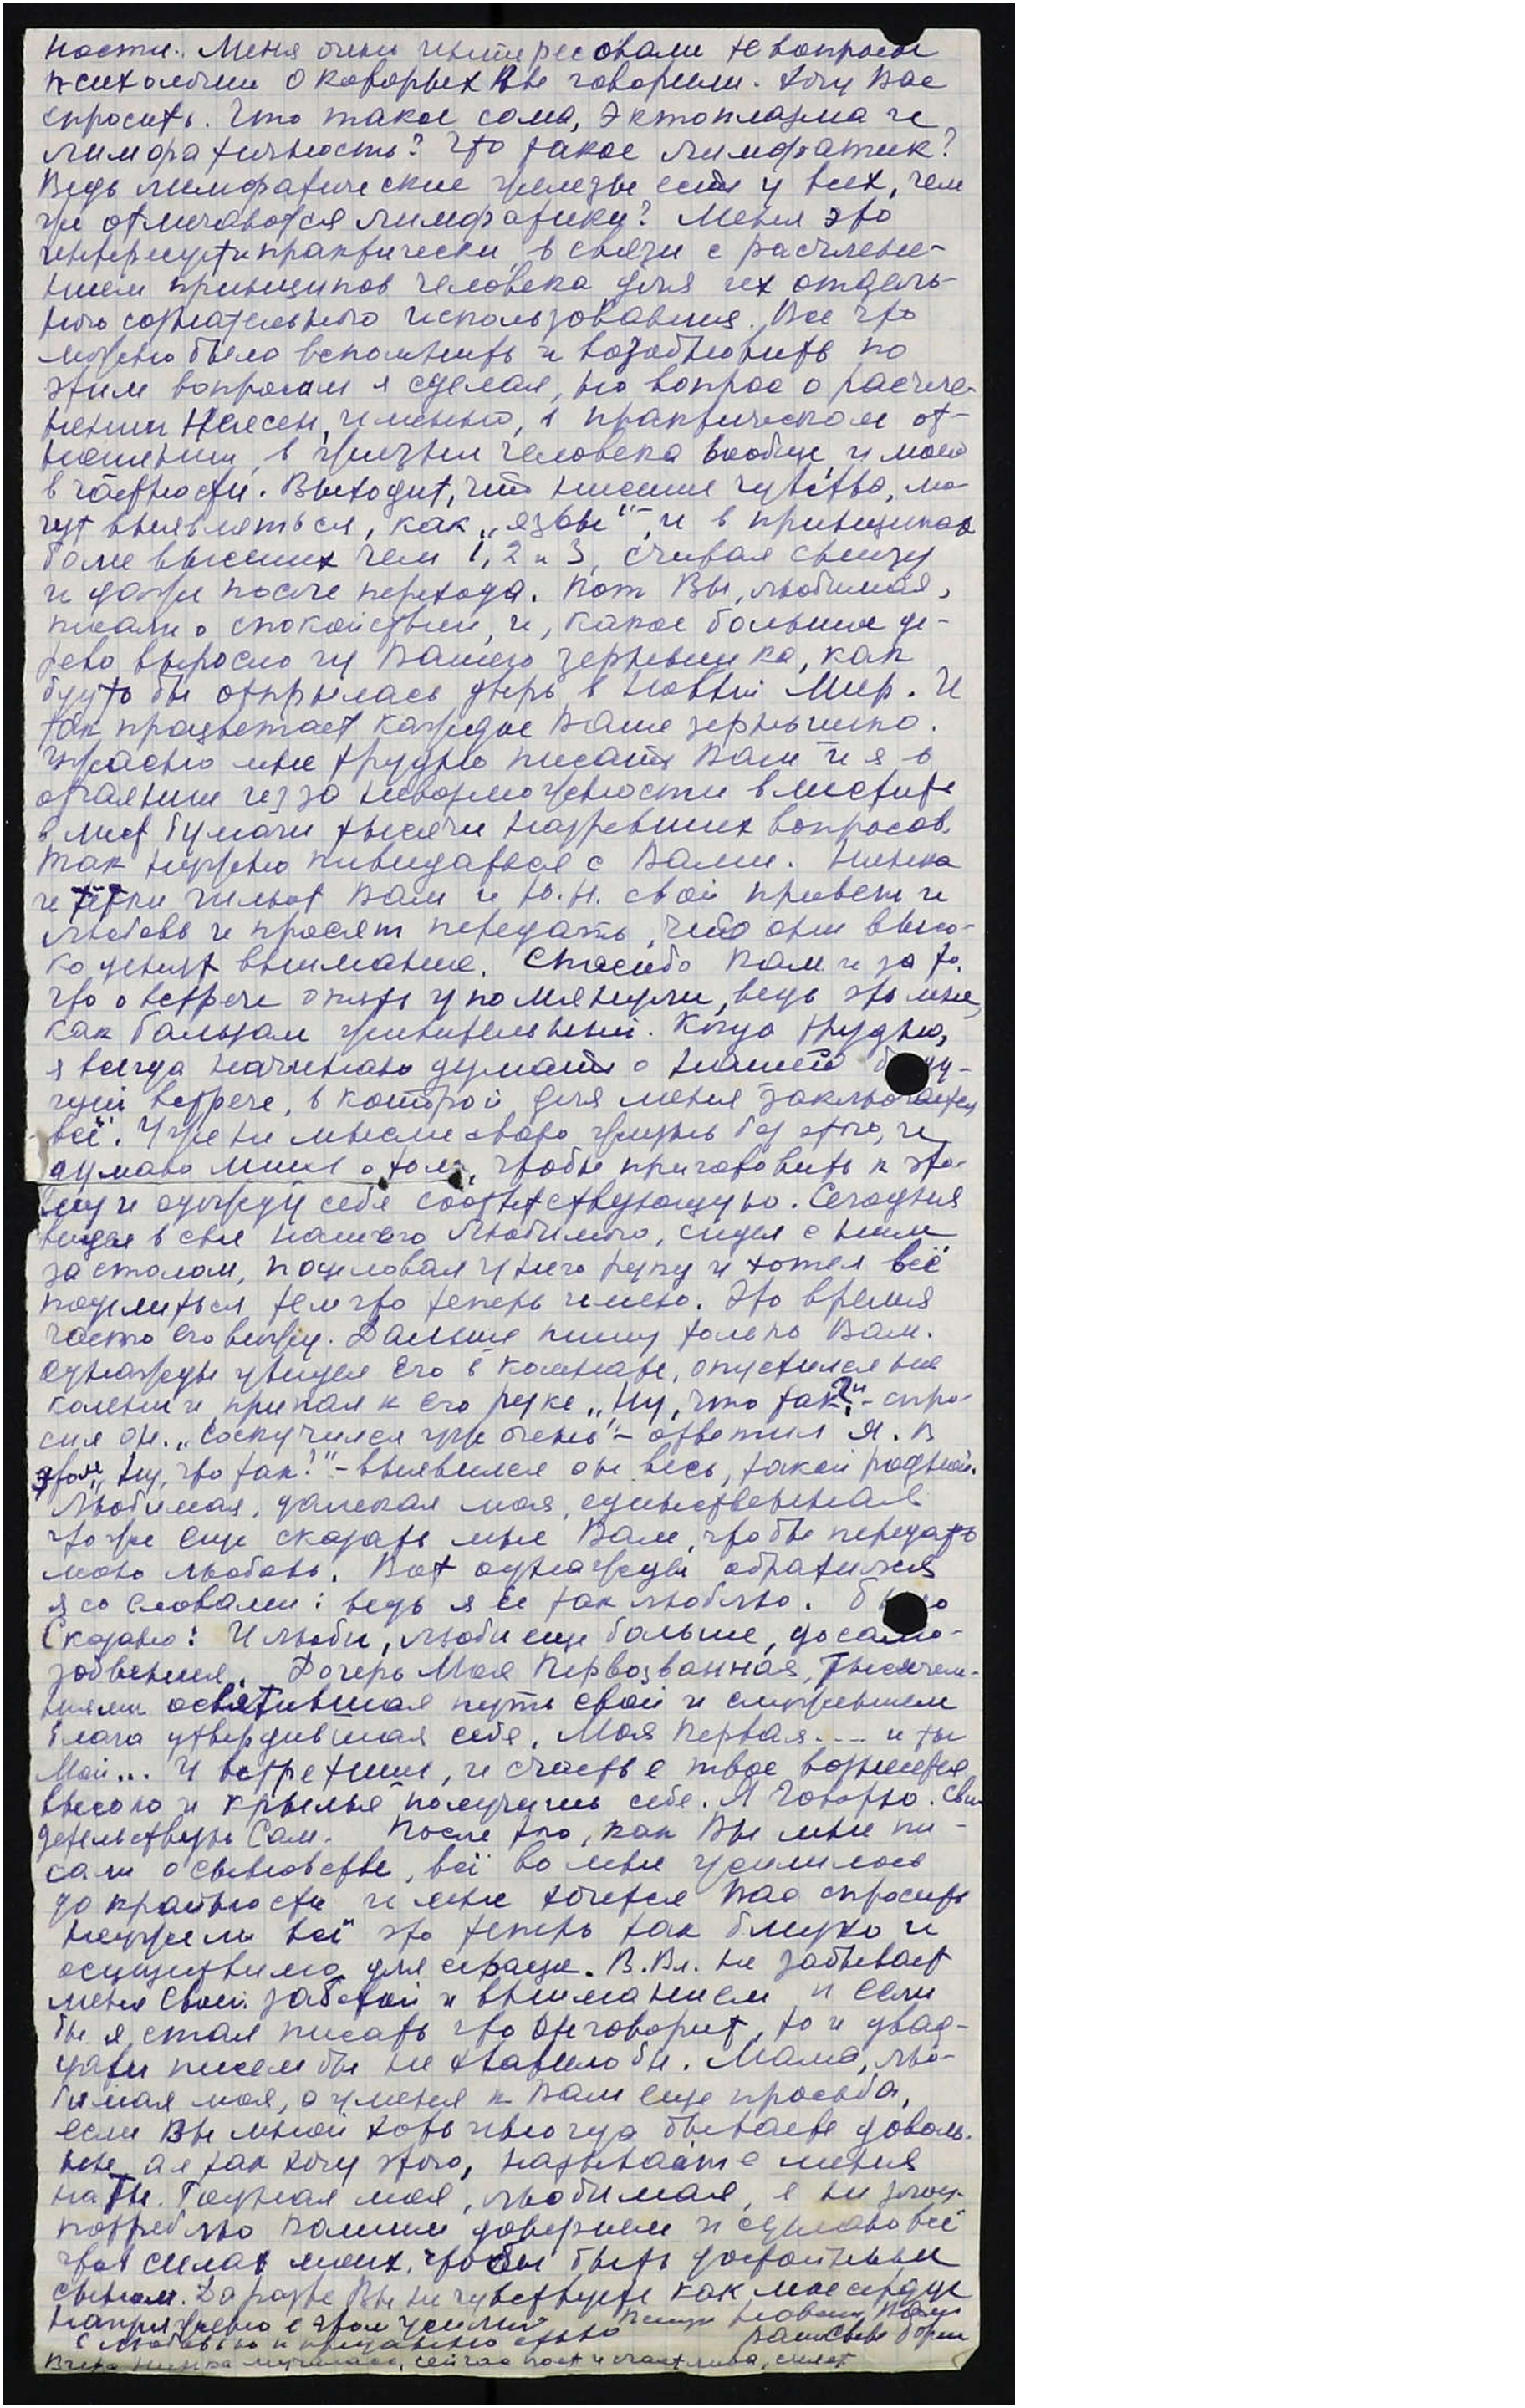 ности. Меня очень интересовали те вопросы
психологии о которых Вы говорили. Хочу Вас
спросить. Что такое сома, эктоплазма и
лимфатичность? Что такое лимфатик?
Ведь лимфатические железы есть у всех, чем
же отличаются лимфатики? Меня это
интересует и практически, в связи с расчлене-
нием принципов человека для их отдель-
ного сознательного использования. Все что
можно было вспомнить и возобновить по
этим вопросам я сделал, но вопрос о расчле-
нении неясен, именно, в практическом от-
ношении, в жизни человека вообще, и моей
в частности. Выходит, что низшие чувства, мо-
гут выявляться, как „язвы“, и в принципах
более высших чем 1, 2 и 3, считая снизу
и даже после перехода. Вот Вы, любимая,
писали о спокойствии, и, какое большое де-
рево выросло из Вашего зернышка, как
будто бы открылась дверь в Новый Мир. И
так процветает каждое Ваше зернышко.
Ужасно мне трудно писать Вам и я в
отчаянии из за невозможности вместить
в лист бумаги тысячи назревших вопросов.
Так нужно повидаться с Вами. Нинка
и тётки шлют Вам и Ю.Н. свой привет и
любовь и просят передать, что они высо-
ко ценят внимание. Спасибо Вам и за то,
что о встрече опять упомянули, ведь это мне,
как бальзам живительный. Когда трудно,
я всегда начинаю думать о нашей буду-
щей встрече, в которой для меня заключается
всё. Уже не мыслю свою жизнь без этого, и
думаю лишь о том, чтобы приготовить к это-
му и одежду себе соответствующую. Сегодня
видел в сне нашего Любимого, сидел с ним
за столом, поцеловал у него руку и хотел всё
поделиться тем что теперь имею. Это время
часто его вижу. Дальше пишу только Вам.
Однажды увидел Его в комнате, опустился на
колени и припал к его руке „Ну, что так?“ - спро-
сил он. „Соскучился уж очень“ - ответил я. В
этом „Ну, что так?“ - выявился он весь, такой родной.
Любимая, далекая моя, единственная
что же еще сказать мне Вам, чтобы передать
мою любовь. Вот однажды обратился
я со словами: ведь я её так люблю. Было
Сказано: И люби, люби еще больше, до само-
забвения. Дочерь Моя Первозванная, Тысячеле-
тиями осветившая путь свой и служением
блага утвердившая себя. Моя первая.... и ты
Мой... И встретишь, и счастье твое вознесется
высоко и крылья получишь себе. Я Говорю. Сви-
детельствую Сам. После того, как Вы мне пи-
сали о сыновстве, всё во мне усилилось
до крайности и мне хочется Вас спросить
неужели всё это теперь так близко и
осуществимо для сердца. В.Вл. не забывает
меня своей заботой и вниманием и если
бы я стал писать что он говорит, то и двад-
цати писем бы не хватило бы. Мама, лю-
бимая моя, а у меня к Вам еще просьба,
если Вы мной хоть иногда бываете доволь-
ны, а я так хочу этого, называйте меня
на Ты. Родная моя, любимая, я не злоу-
потреблю Вашим доверием и сделаю всё
что в силах моих, чтобы быть достойным
сыном. Да разве Вы не чувствуете как мое сердце
напряжено в этом усилии
с любовью и преданно Ваш сын Борис
Вчера Нинка мучилась, сейчас поет и счастлива,